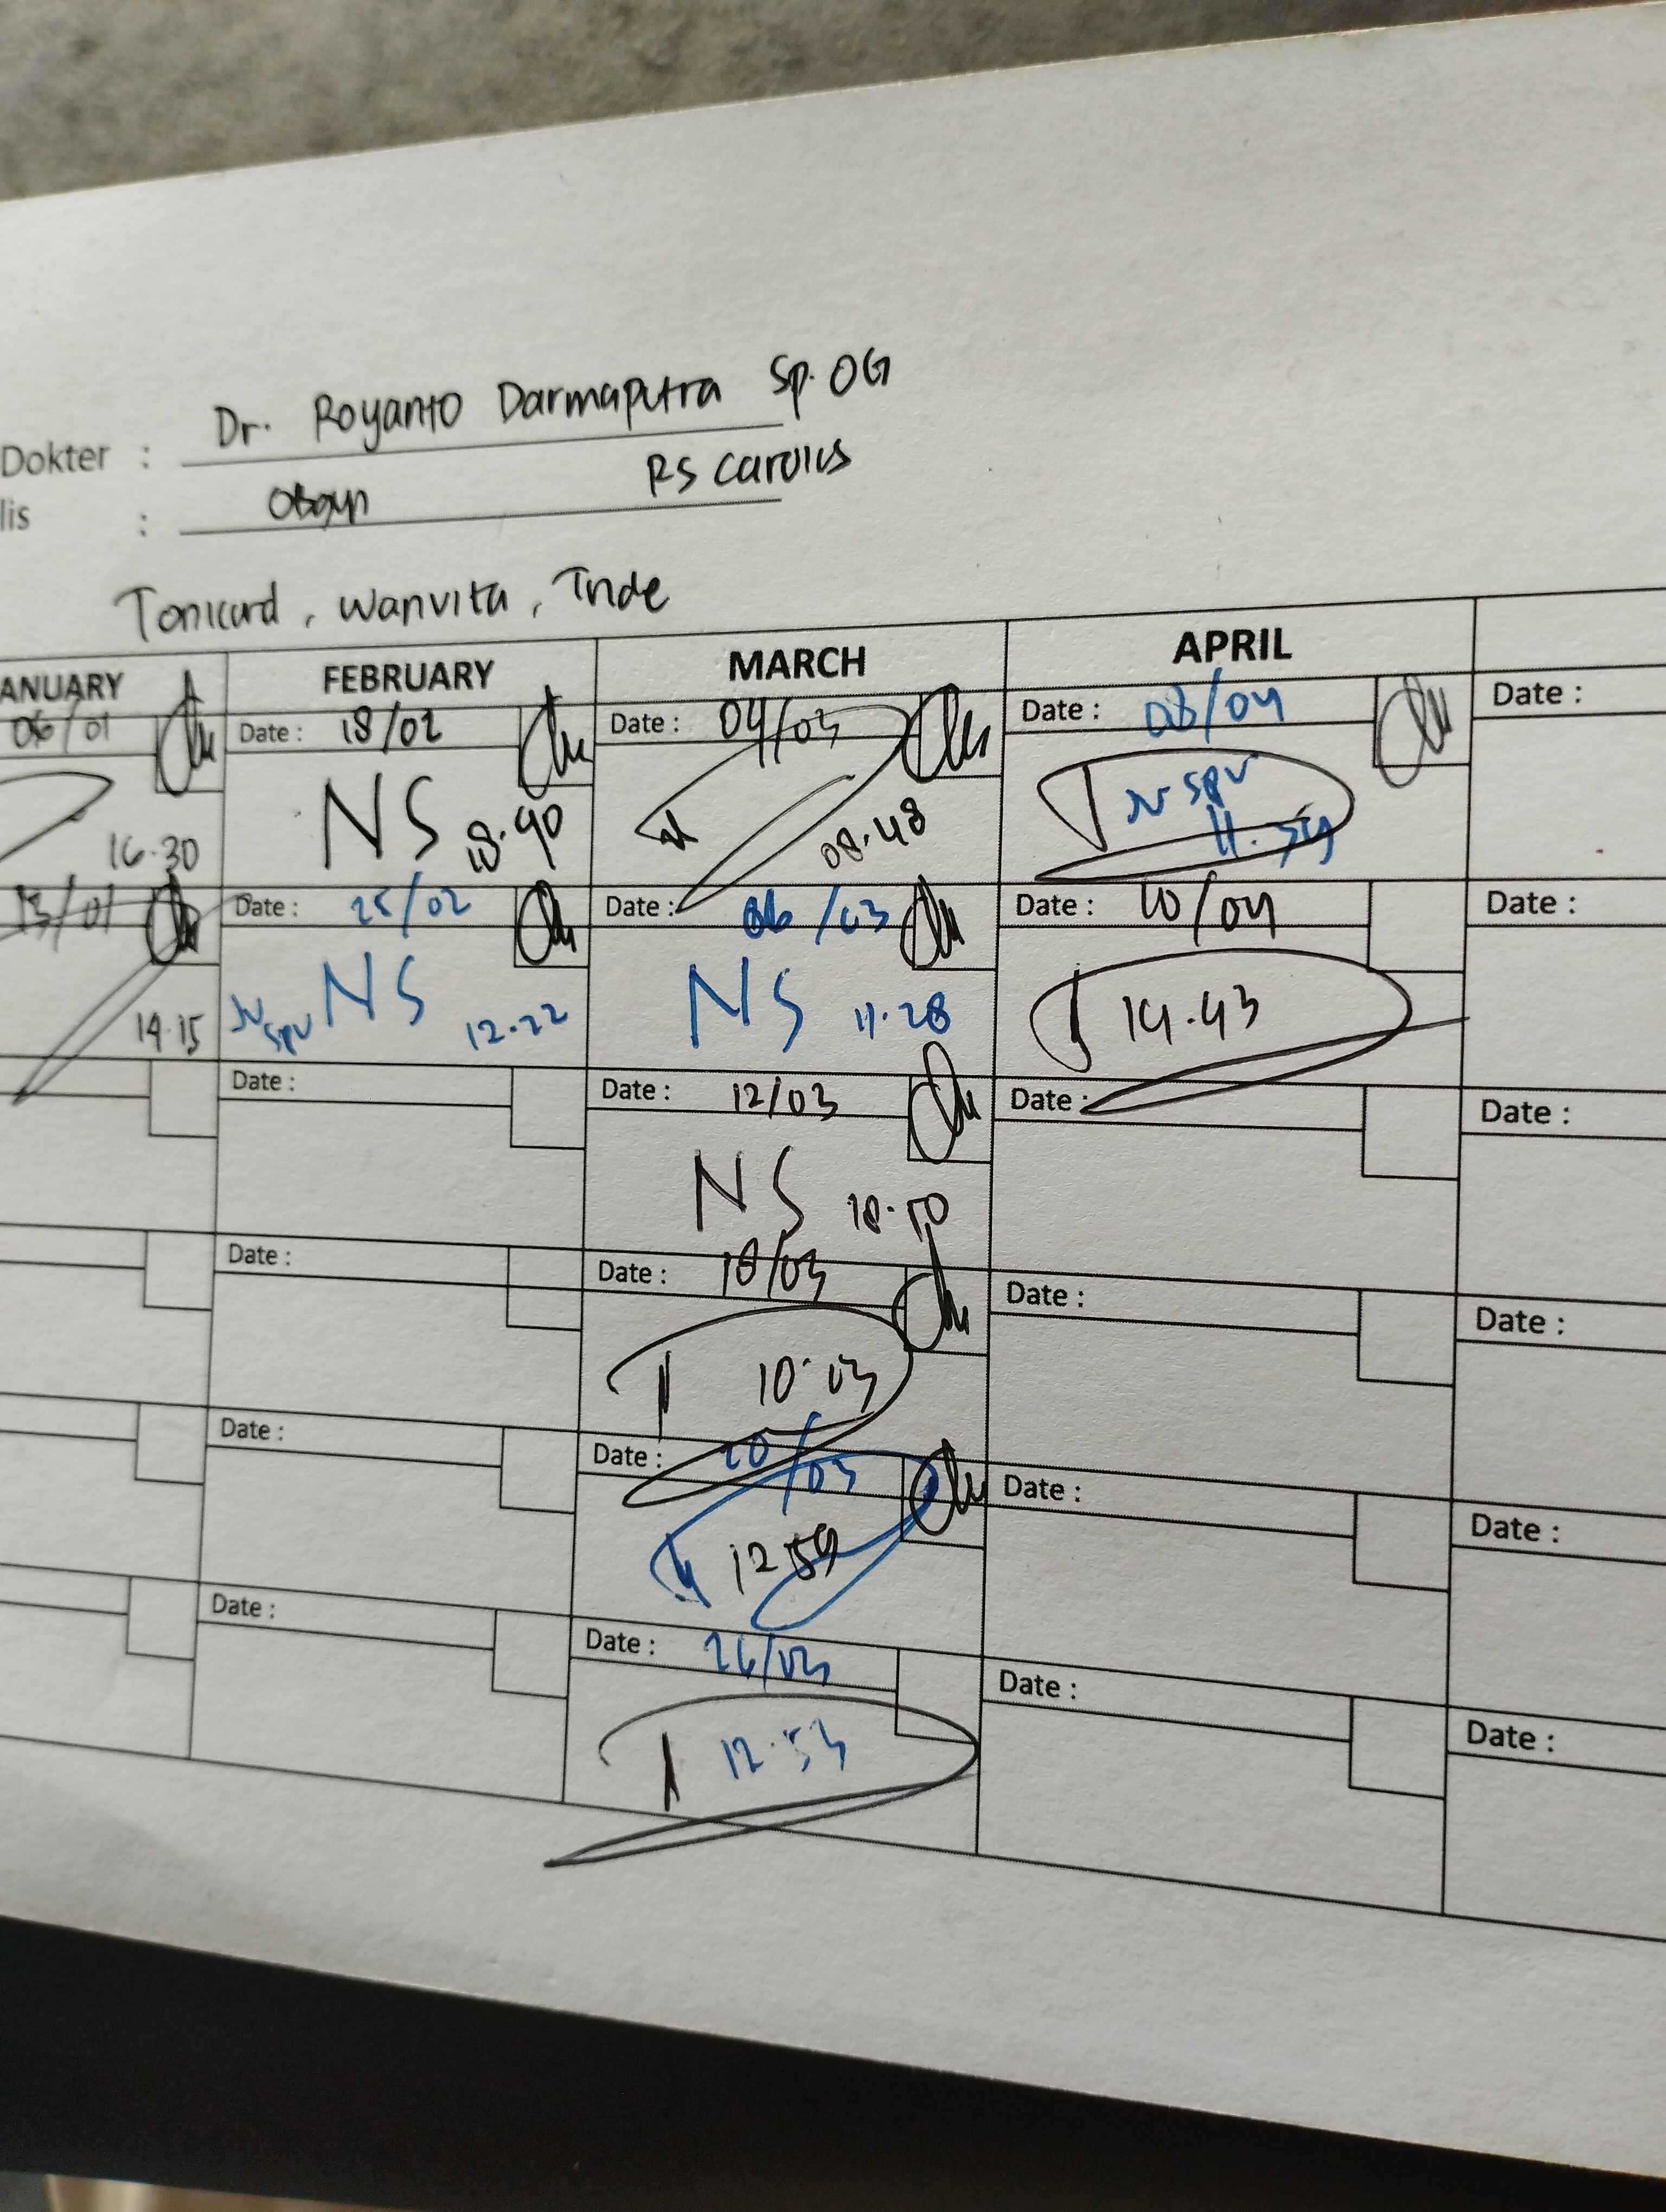 Dokter : Dr. Royanto Darmaputra Sp. OG
lis : Obgyn RS Carolus
Tonicard, Wanvita, Tride
ANUARY FEBRUARY MARCH APRIL
06/01 Date : 18/02 Date : 04/03 Date : 08/04 Date :
16.30 NS 18.40 08.48 JV SPV 11.59
13/01 Date : 25/02 Date : 06/03 Date : 10/04 Date :
14.15 JV SPV NS 12.22 NS 11.28 14.43
Date : Date : 12/03 Date : Date :
NS 18.50
Date : Date : 18/03 Date : Date :
10.03
Date : Date : 20/03 Date : Date :
12.59
Date : Date : 26/03 Date : Date :
12.53